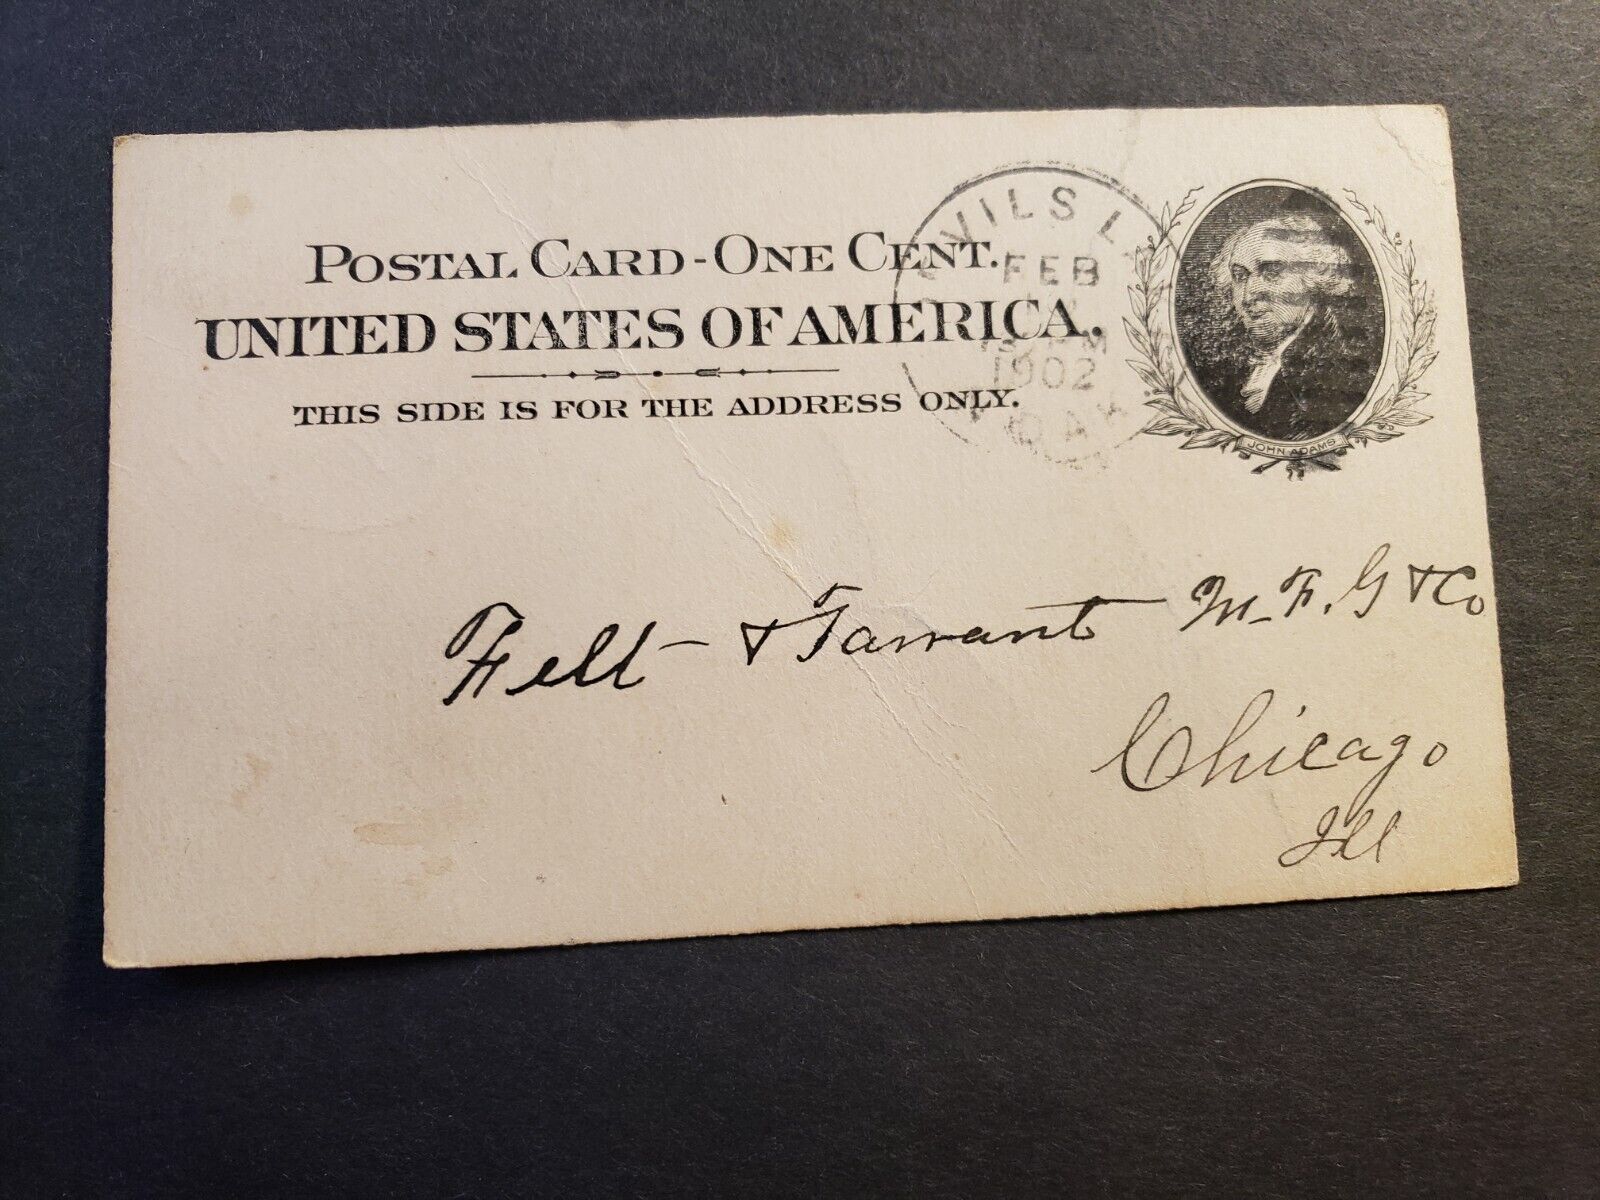 POSTAL CARD - ONE CENT.
UNITED STATES OF AMERICA.
THIS SIDE IS FOR THE ADDRESS ONLY.
VILS L
FEB
1902
DAK
JOHN ADAMS
Felt & Tarrant M.F.G & Co
Chicago
Ill